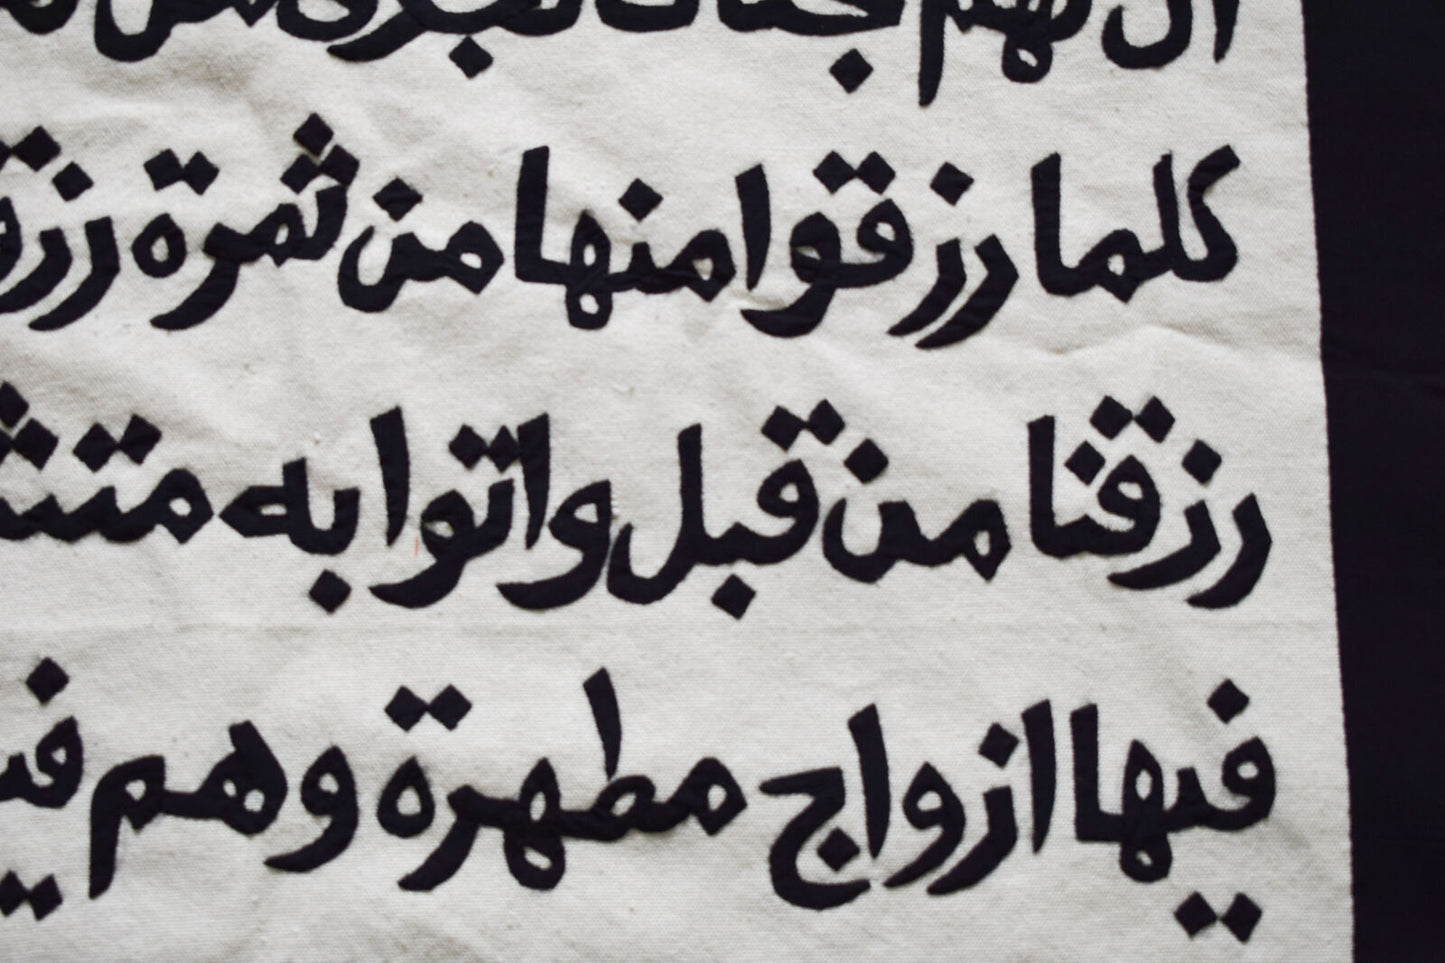 ان لهم جنات تجرى من
كلما رزقوا منها من ثمرة
رزقنا من قبل واتوا به
فيها ازواج مطهرة وهم